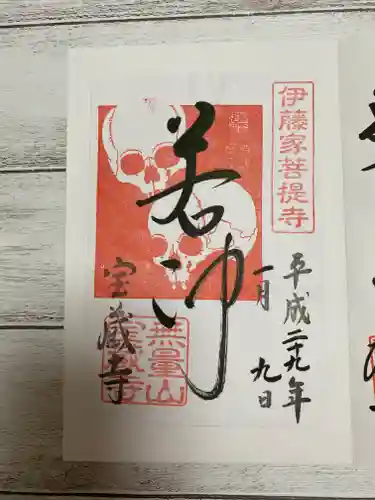 伊藤家菩提寺
平成二十九年
一月九日
若冲
無量山
宝蔵寺
宝蔵寺